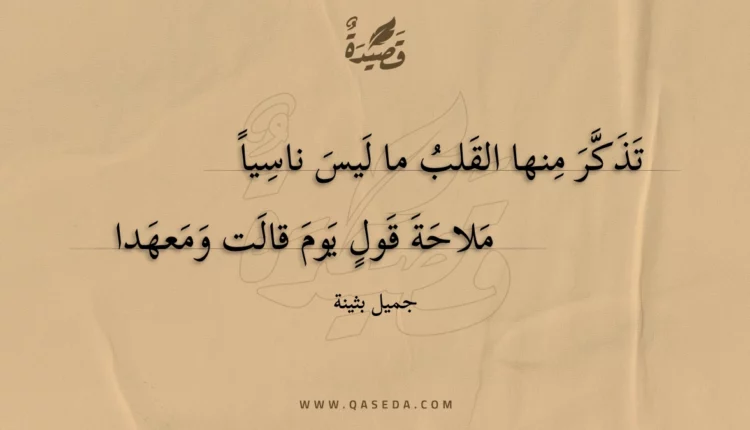 قَصِيْدَةٌ
تَذَكَّرَ مِنها القَلبُ ما لَيسَ ناسِياً
مَلاحَةَ قَولٍ يَومَ قالَت وَمَعهَدا
جميل بثينة
WWW.QASEDA.COM